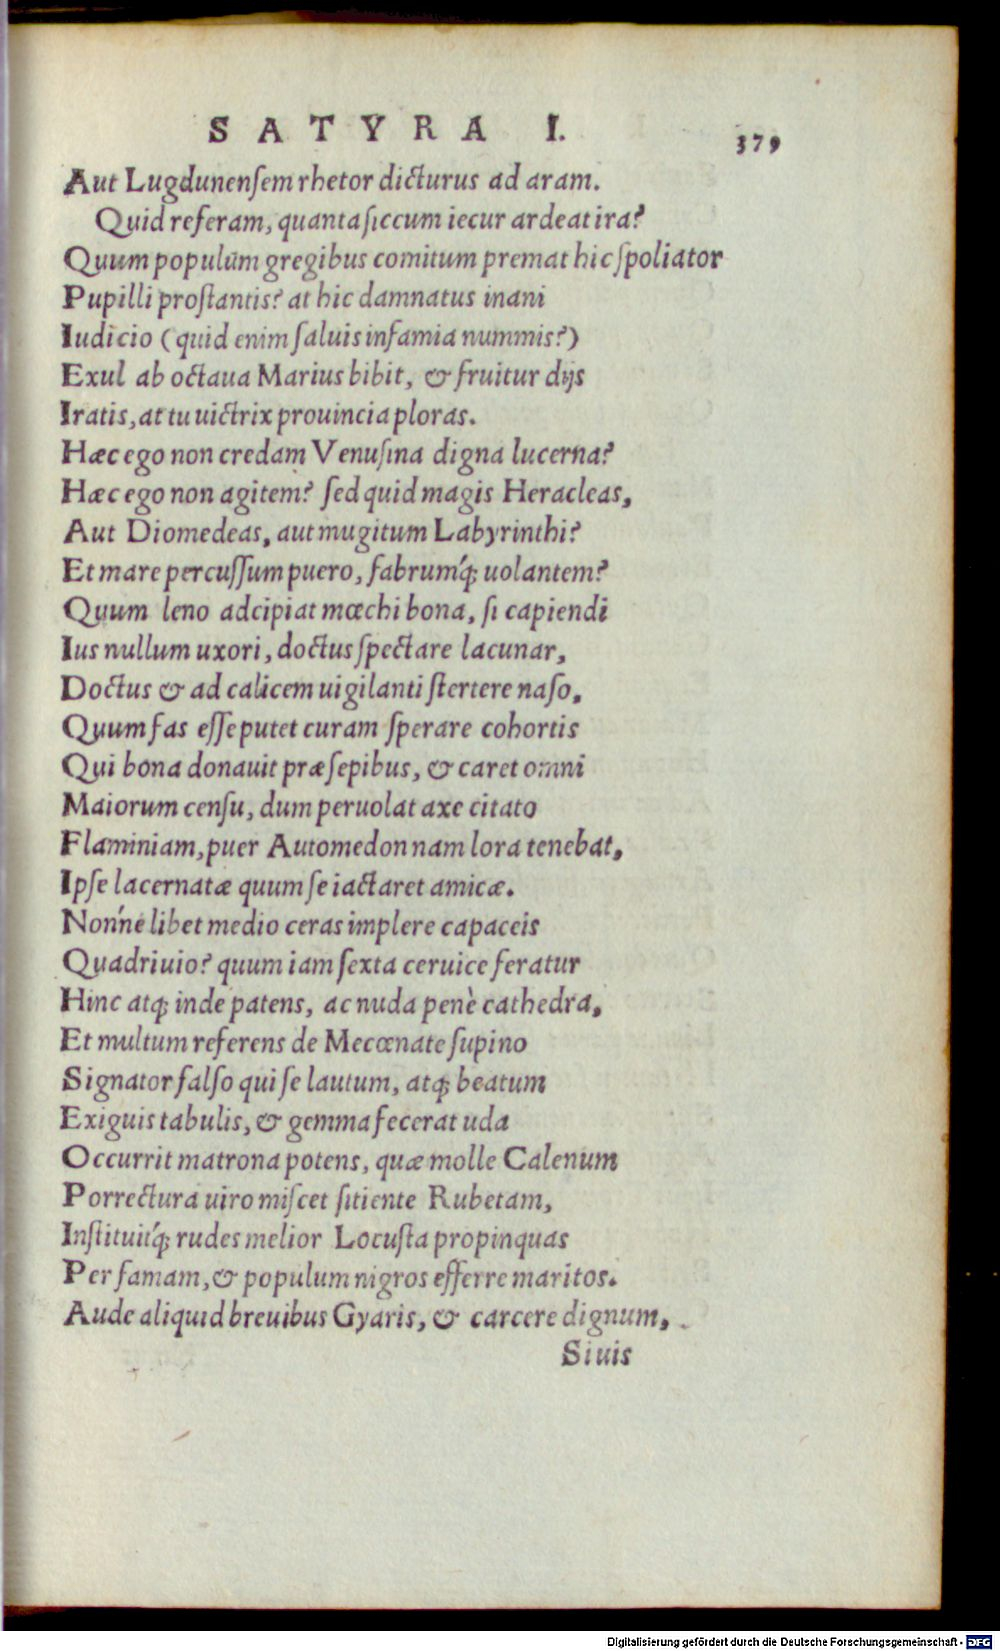 SATYRA I.
379
Aut Lugdunenſem rhetor dicturus ad aram.
Quid referam, quanta ſiccum iecur ardeat ira?
Quum populum gregibus comitum premat hic ſpoliator
Pupilli proſtantis? at hic damnatus inani
Iudicio (quid enim ſaluis infamia nummis?)
Exul ab octaua Marius bibit, & fruitur dijs
Iratis, at tu uictrix prouincia ploras.
Hæc ego non credam Venuſina digna lucerna?
Hæc ego non agitem? ſed quid magis Heracleas,
Aut Diomedeas, aut mugitum Labyrinthi?
Et mare percuſſum puero, fabrumq́; uolantem?
Quum leno adcipiat mœchi bona, ſi capiendi
Ius nullum uxori, doctus ſpectare lacunar,
Doctus & ad calicem uigilanti ſtertere naſo,
Quum fas eſſe putet curam ſperare cohortis
Qui bona donauit præſepibus, & caret omni
Maiorum cenſu, dum peruolat axe citato
Flaminiam, puer Automedon nam lora tenebat,
Ipſe lacernatæ quum ſe iactaret amicæ.
Nońne libet medio ceras implere capaceis
Quadriuio? quum iam ſexta ceruice feratur
Hinc atq; inde patens, ac nuda penè cathedra,
Et multum referens de Mecœnate ſupino
Signator falſo qui ſe lautum, atq; beatum
Exiguis tabulis, & gemma fecerat uda
Occurrit matrona potens, quæ molle Calenum
Porrectura uiro miſcet ſitiente Rubetam,
Inſtituitq́; rudes melior Locuſta propinquas
Per famam, & populum nigros efferre maritos.
Aude aliquid breuibus Gyaris, & carcere dignum,
Si uis
Digitalisierung gefördert durch die Deutsche Forschungsgemeinschaft - DFG